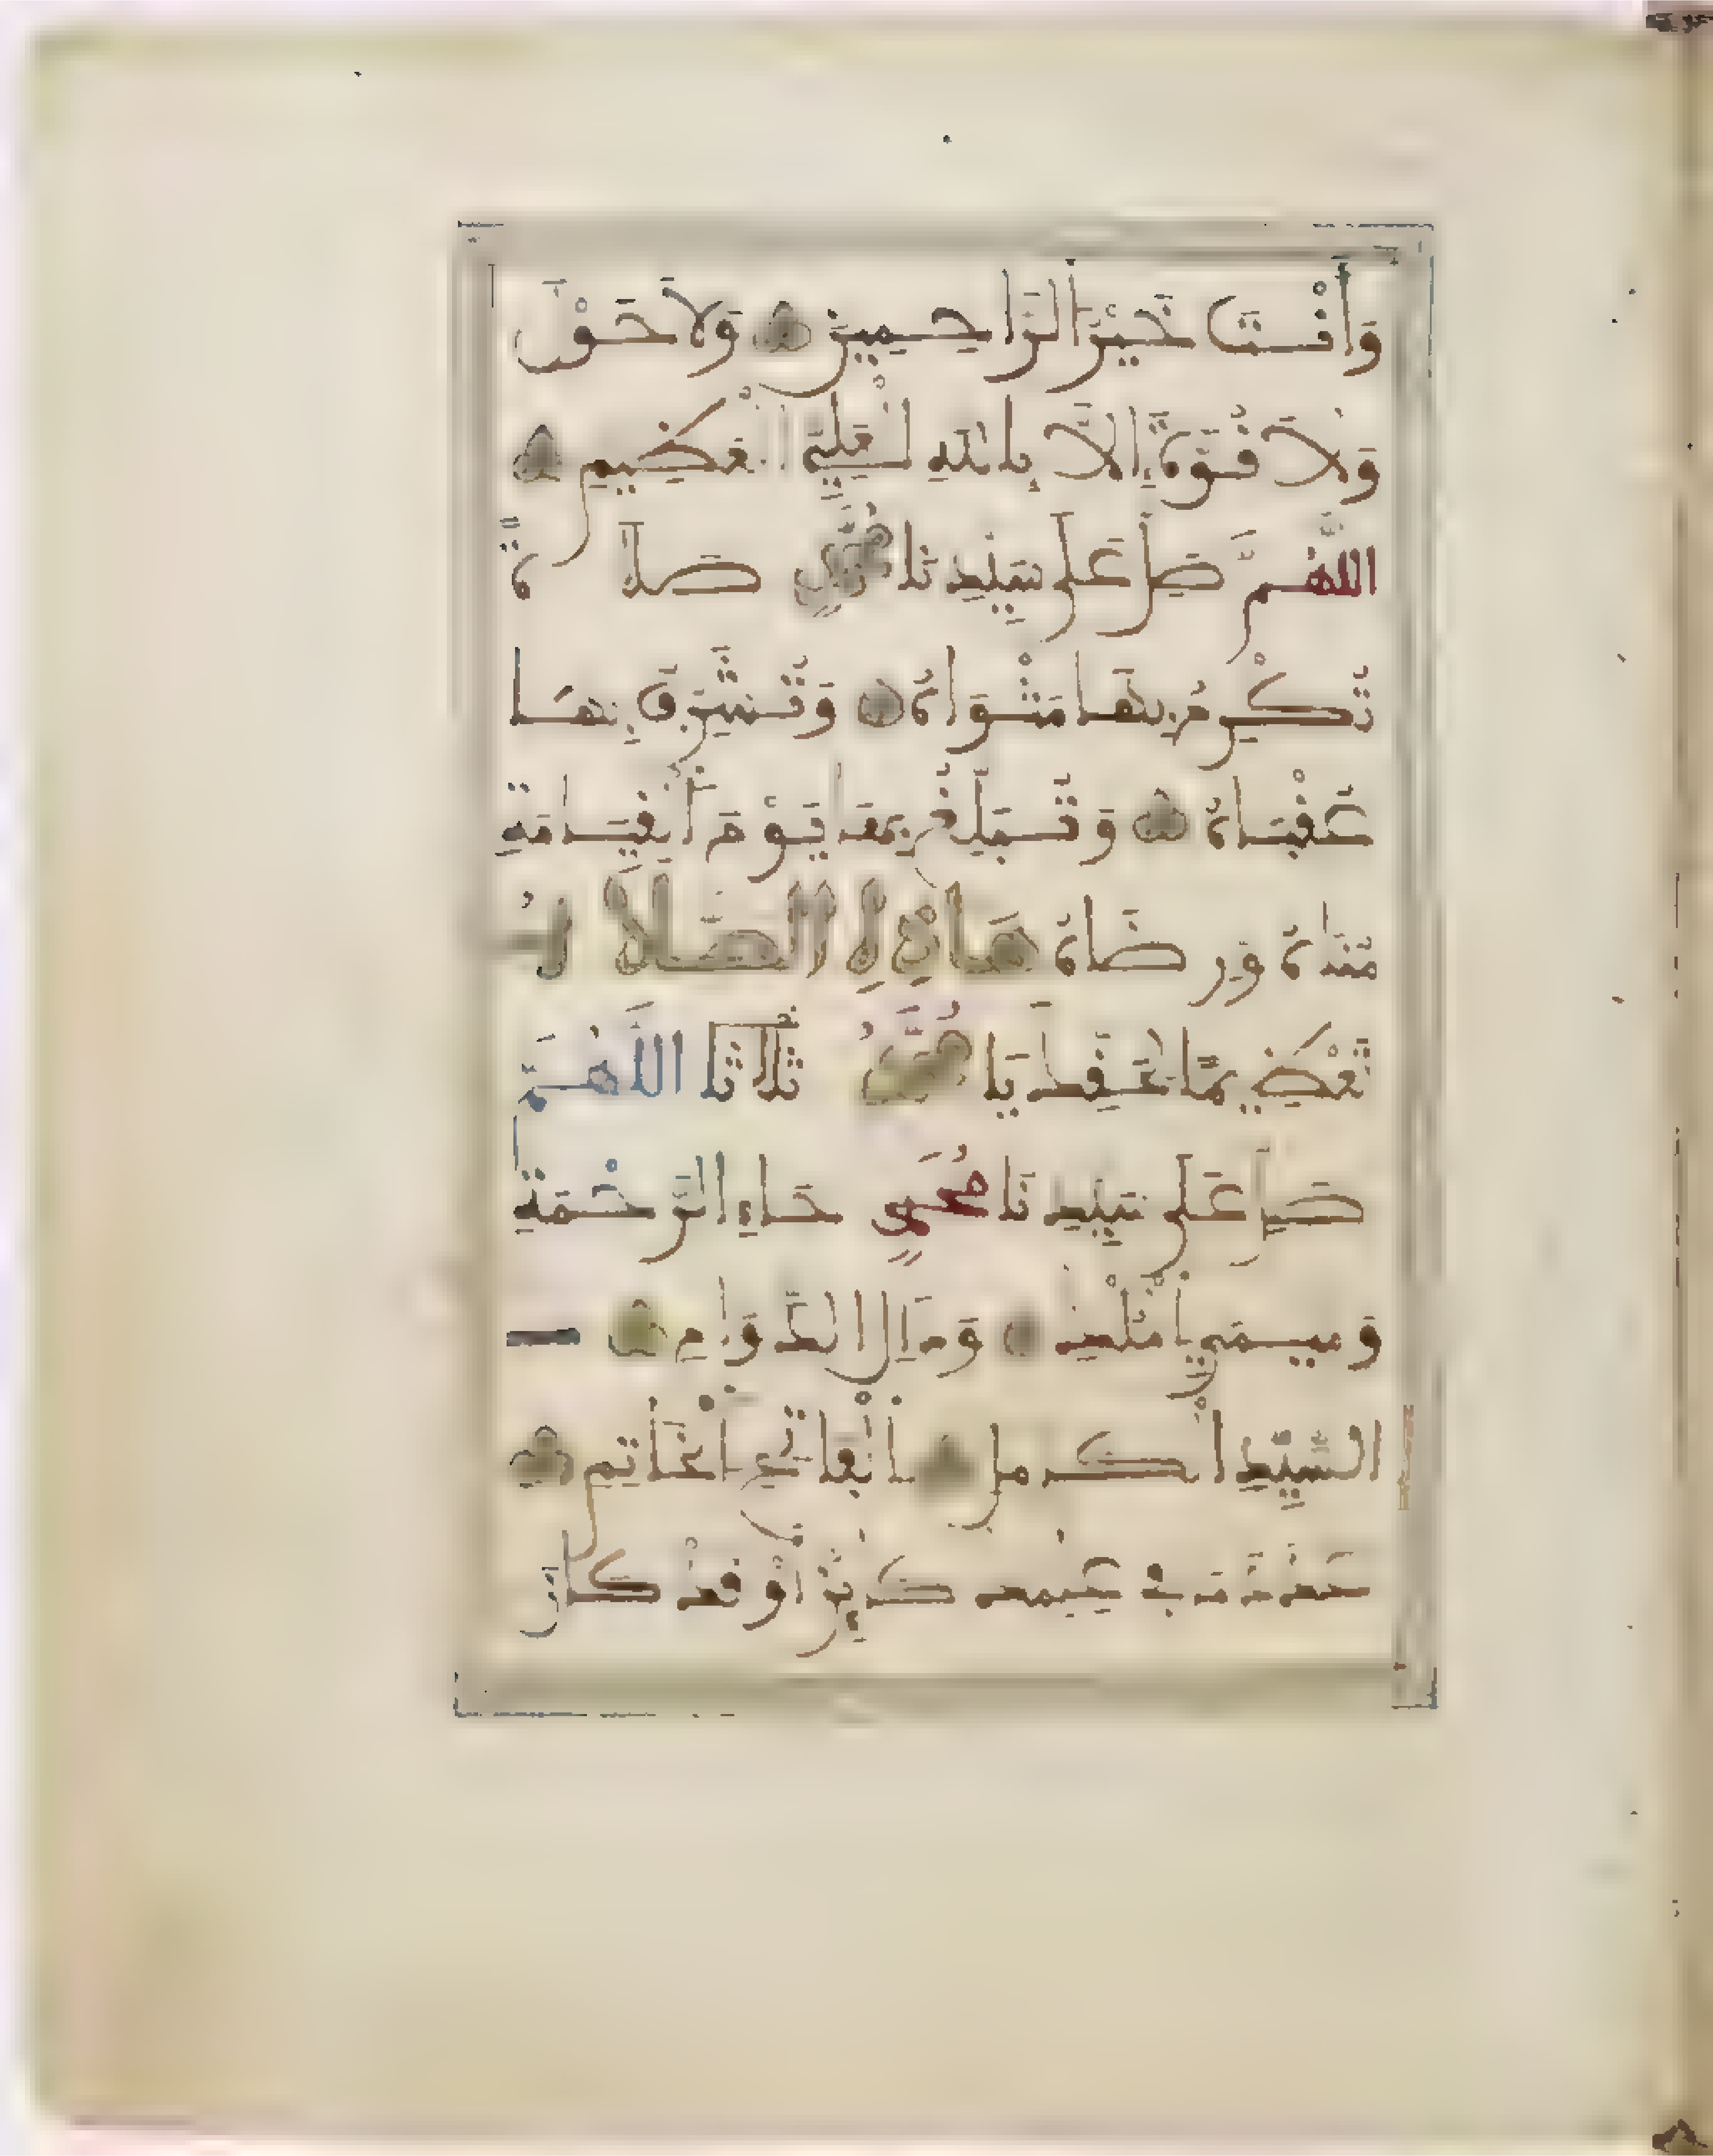 وَأَنْتَ خَيْرُ الرَّاحِمِينَ وَلَا حَوْلَ
وَلَا قُوَّةَ إِلَّا بِاللَّهِ الْعَلِيِّ الْعَظِيمِ
اللَّهُمَّ صَلِّ عَلَى سَيِّدِنَا مُحَمَّدٍ صَلَاةً
تُكْرِمُ بِهَا مَثْوَاهُ وَتُشَرِّفُ بِهَا
عُقْبَاهُ وَتُبَلِّغُ بِهَا يَوْمَ الْقِيَامَةِ
مُنَاهُ وَرِضَاهُ هَذِهِ الصَّلَاةُ
تَعْظِيمًا لِحَقِّكَ يَا مُحَمَّدُ ثَلَاثًا اللَّهُمَّ
صَلِّ عَلَى سَيِّدِنَا مُحَمَّدٍ حَاءِ الرَّحْمَةِ
وَمِيمَيِ الْمُلْكِ وَدَالِ الدَّوَامِ
السَّيِّدِ الْكَامِلِ الْفَاتِحِ الْخَاتِمِ
عَدَدَ مَا فِي عِلْمِكَ كَائِنٌ أَوْ قَدْ كَانَ